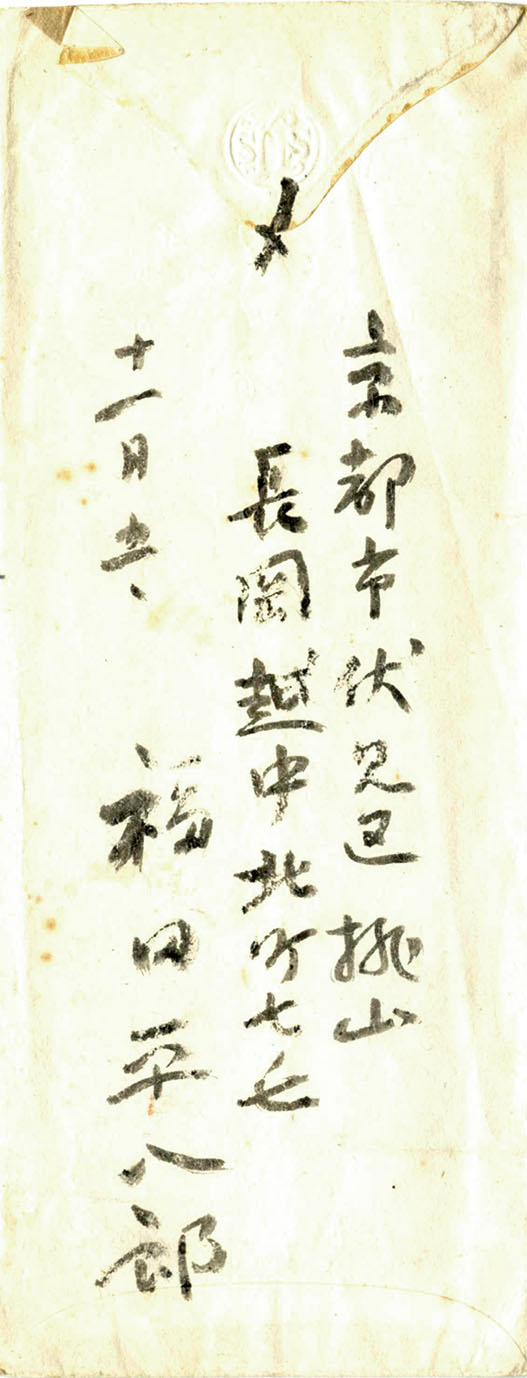 〆
京都市伏見区桃山
長岡越中北町七七
福田平八郎
十一月五、